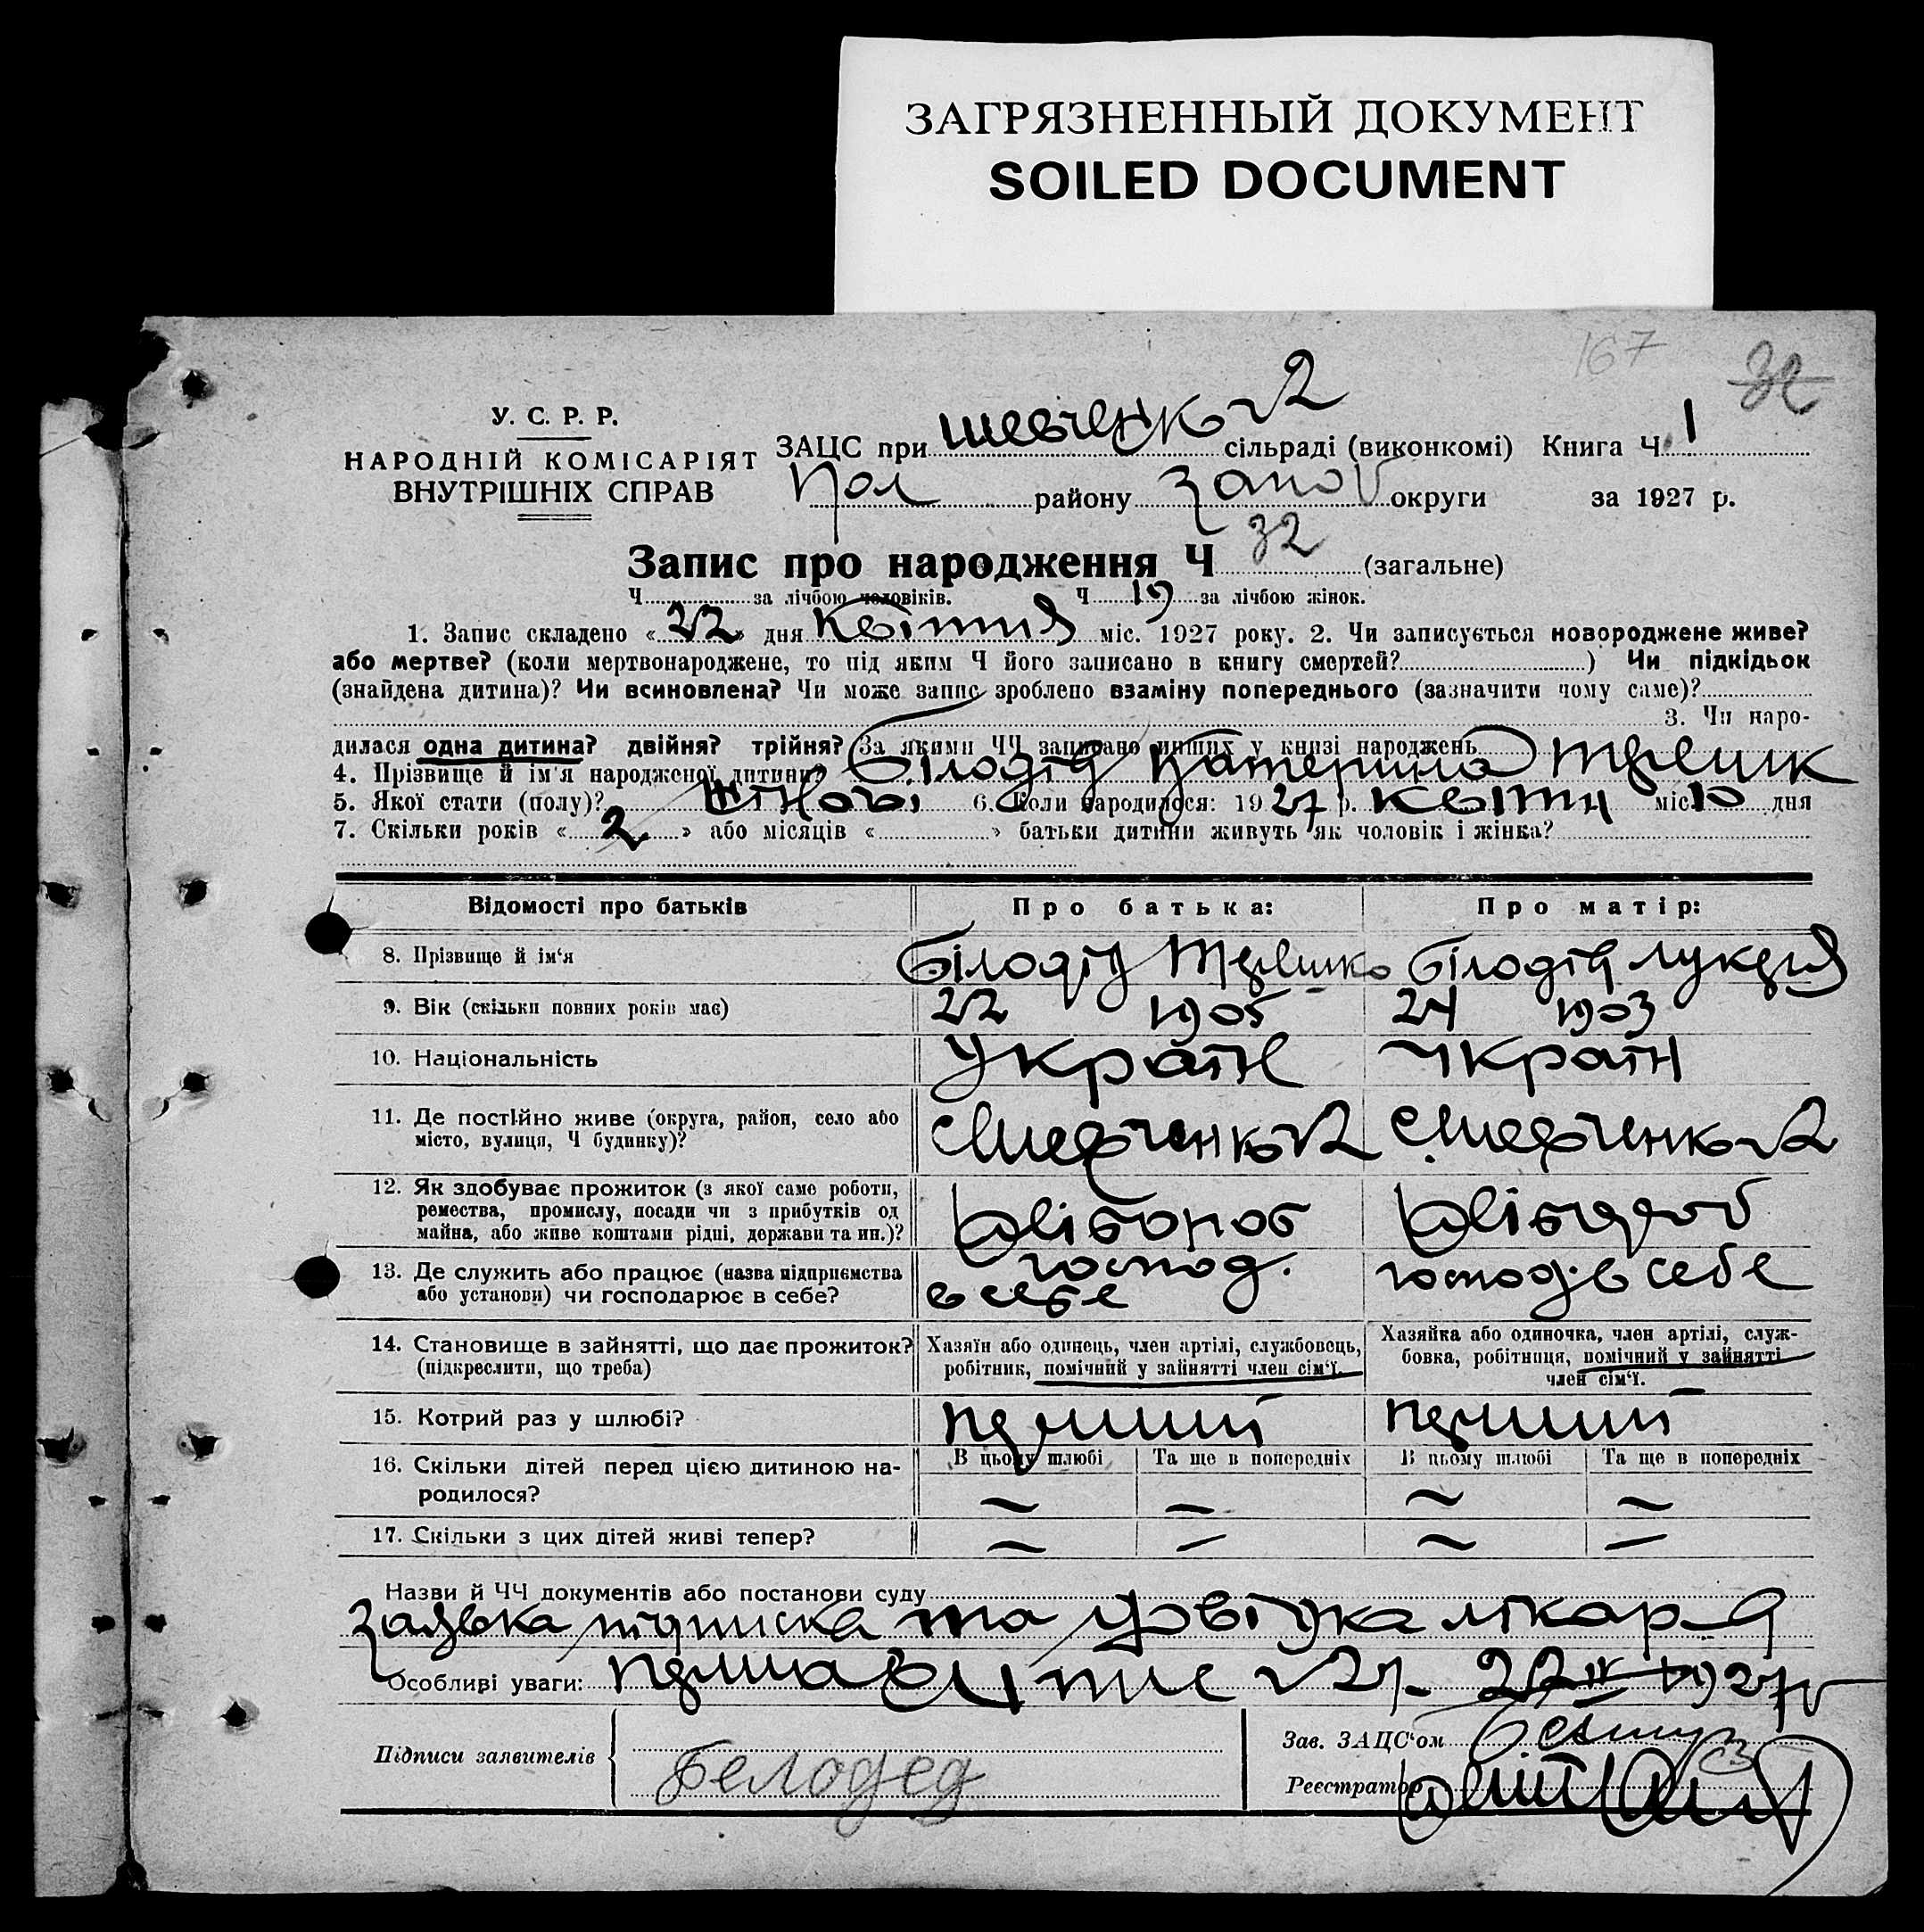 ЗАГРЯЗНЕННЫЙ ДОКУМЕНТ
SOILED DOCUMENT
167 32
У. С. Р. Р.
НАРОДНІЙ КОМІСАРІЯТ
ВНУТРІШНІХ СПРАВ
ЗАЦС при шевченко № 2 сільраді (виконкомі) Книга Ч 1
Пол району Запов округи за 1927 р.
Запис про народження Ч 32 (загальне)
Ч за лічбою чоловіків. Ч 19 за лічбою жінок.
1. Запис складено « 22 » дня Квітня міс. 1927 року. 2. Чи записується новороджене живе?
або мертве? (коли мертвонароджене, то під яким Ч його записано в книгу смертей? ) Чи підкідьок
(знайдена дитина)? Чи всиновлена? Чи може запис зроблено взаміну попереднього (зазначити чому саме)?
3. Чи наро-
дилася одна дитина? двійня? трійня? За якими ЧЧ записано инших у книзі народжень
4. Прізвище й ім'я народженої дитини? Білодід Катерина Терешк
5. Якої стати (полу)? жіночі 6. Коли народилося: 1927 р. квітн міс 10 дня
7. Скільки років « 2 » або місяців « » батьки дитини живуть як чоловік і жінка?
Відомості про батьків Про батька: Про матір:
8. Прізвище й ім'я Білодід Терешко Білодід Лукерія
9. Вік (скільки повних років має) 22 1905 24 1903
10. Національність Україн Україн
11. Де постійно живе (округа, район, село або
місто, вулиця, Ч будинку)? с Шевченко № 2 с. Шевченко № 2
12. Як здобуває прожиток (з якої саме роботи,
ремества, промислу, посади чи з прибутків од
майна, або живе коштами рідні, держави та ин.)? хлібороб хлібороб
13. Де служить або працює (назва підприємства
або установи) чи господарює в себе? господ. в себе господ. в себе
14. Становище в зайнятті, що дає прожиток?
(підкреслити, що треба)
Хазяїн або одинець, член артілі, службовець,
робітник, помічний у зайнятті член сім'ї.
Хазяйка або одиночка, член артілі, служ-
бовка, робітниця, помічний у зайнятті
член сім'ї.
15. Котрий раз у шлюбі? перший перший
16. Скільки дітей перед цією дитиною на-
родилося?
В цьому шлюбі Та ще в попередніх В цьому шлюбі Та ще в попередніх
— — — —
17. Скільки з цих дітей живі тепер? — — — —
Назви й ЧЧ документів або постанови суду
Заявка підписка та довідка лікаря
Особливі уваги: 22 IV 1927 р
Підписи заявителів Белодед
Зав. ЗАЦС'ом
Реєстратор